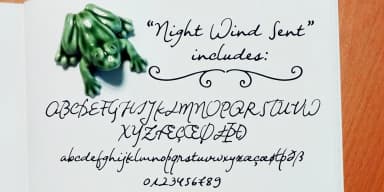 "Night Wind Sent"
includes:
ABCDEFGHIJKLMNOPQRSTUVW
XYZÆŒÇÞŁÐ
abcdefghijklmnopqrstuvwxyzæœøþðß
0123456789